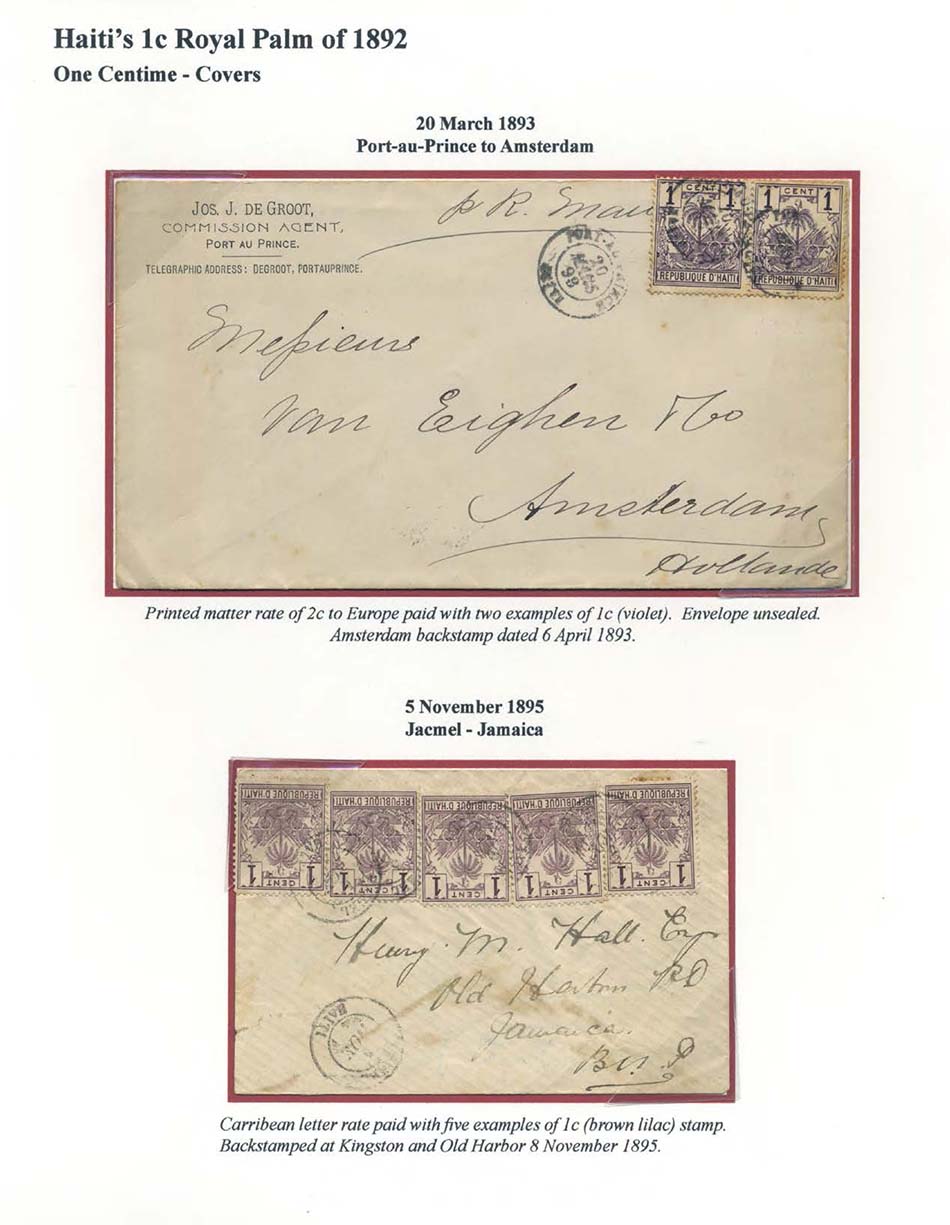 Haiti's 1c Royal Palm of 1892
One Centime - Covers
20 March 1893
Port-au-Prince to Amsterdam
JOS. J. DE GROOT,
COMMISSION AGENT,
PORT AU PRINCE.
TELEGRAPHIC ADDRESS: DEGROOT, PORTAUPRINCE.
p R. Mau
PORT-AU-PRINCE
20
MARS
93
HAITI
1 CENT 1
REPUBLIQUE D'HAITI
1 CENT 1
REPUBLIQUE D'HAITI
Messieurs
Van Eighen & Co
Amsterdam
Hollande
Printed matter rate of 2c to Europe paid with two examples of 1c (violet). Envelope unsealed.
Amsterdam backstamp dated 6 April 1893.
5 November 1895
Jacmel - Jamaica
REPUBLIQUE D'HAITI
1 CENT 1
REPUBLIQUE D'HAITI
1 CENT 1
REPUBLIQUE D'HAITI
1 CENT 1
REPUBLIQUE D'HAITI
1 CENT 1
REPUBLIQUE D'HAITI
1 CENT 1
Henry. M. Hall. Esq
Old Harbour P.O
Jamaica.
HAITI
NOV
Carribean letter rate paid with five examples of 1c (brown lilac) stamp.
Backstamped at Kingston and Old Harbor 8 November 1895.